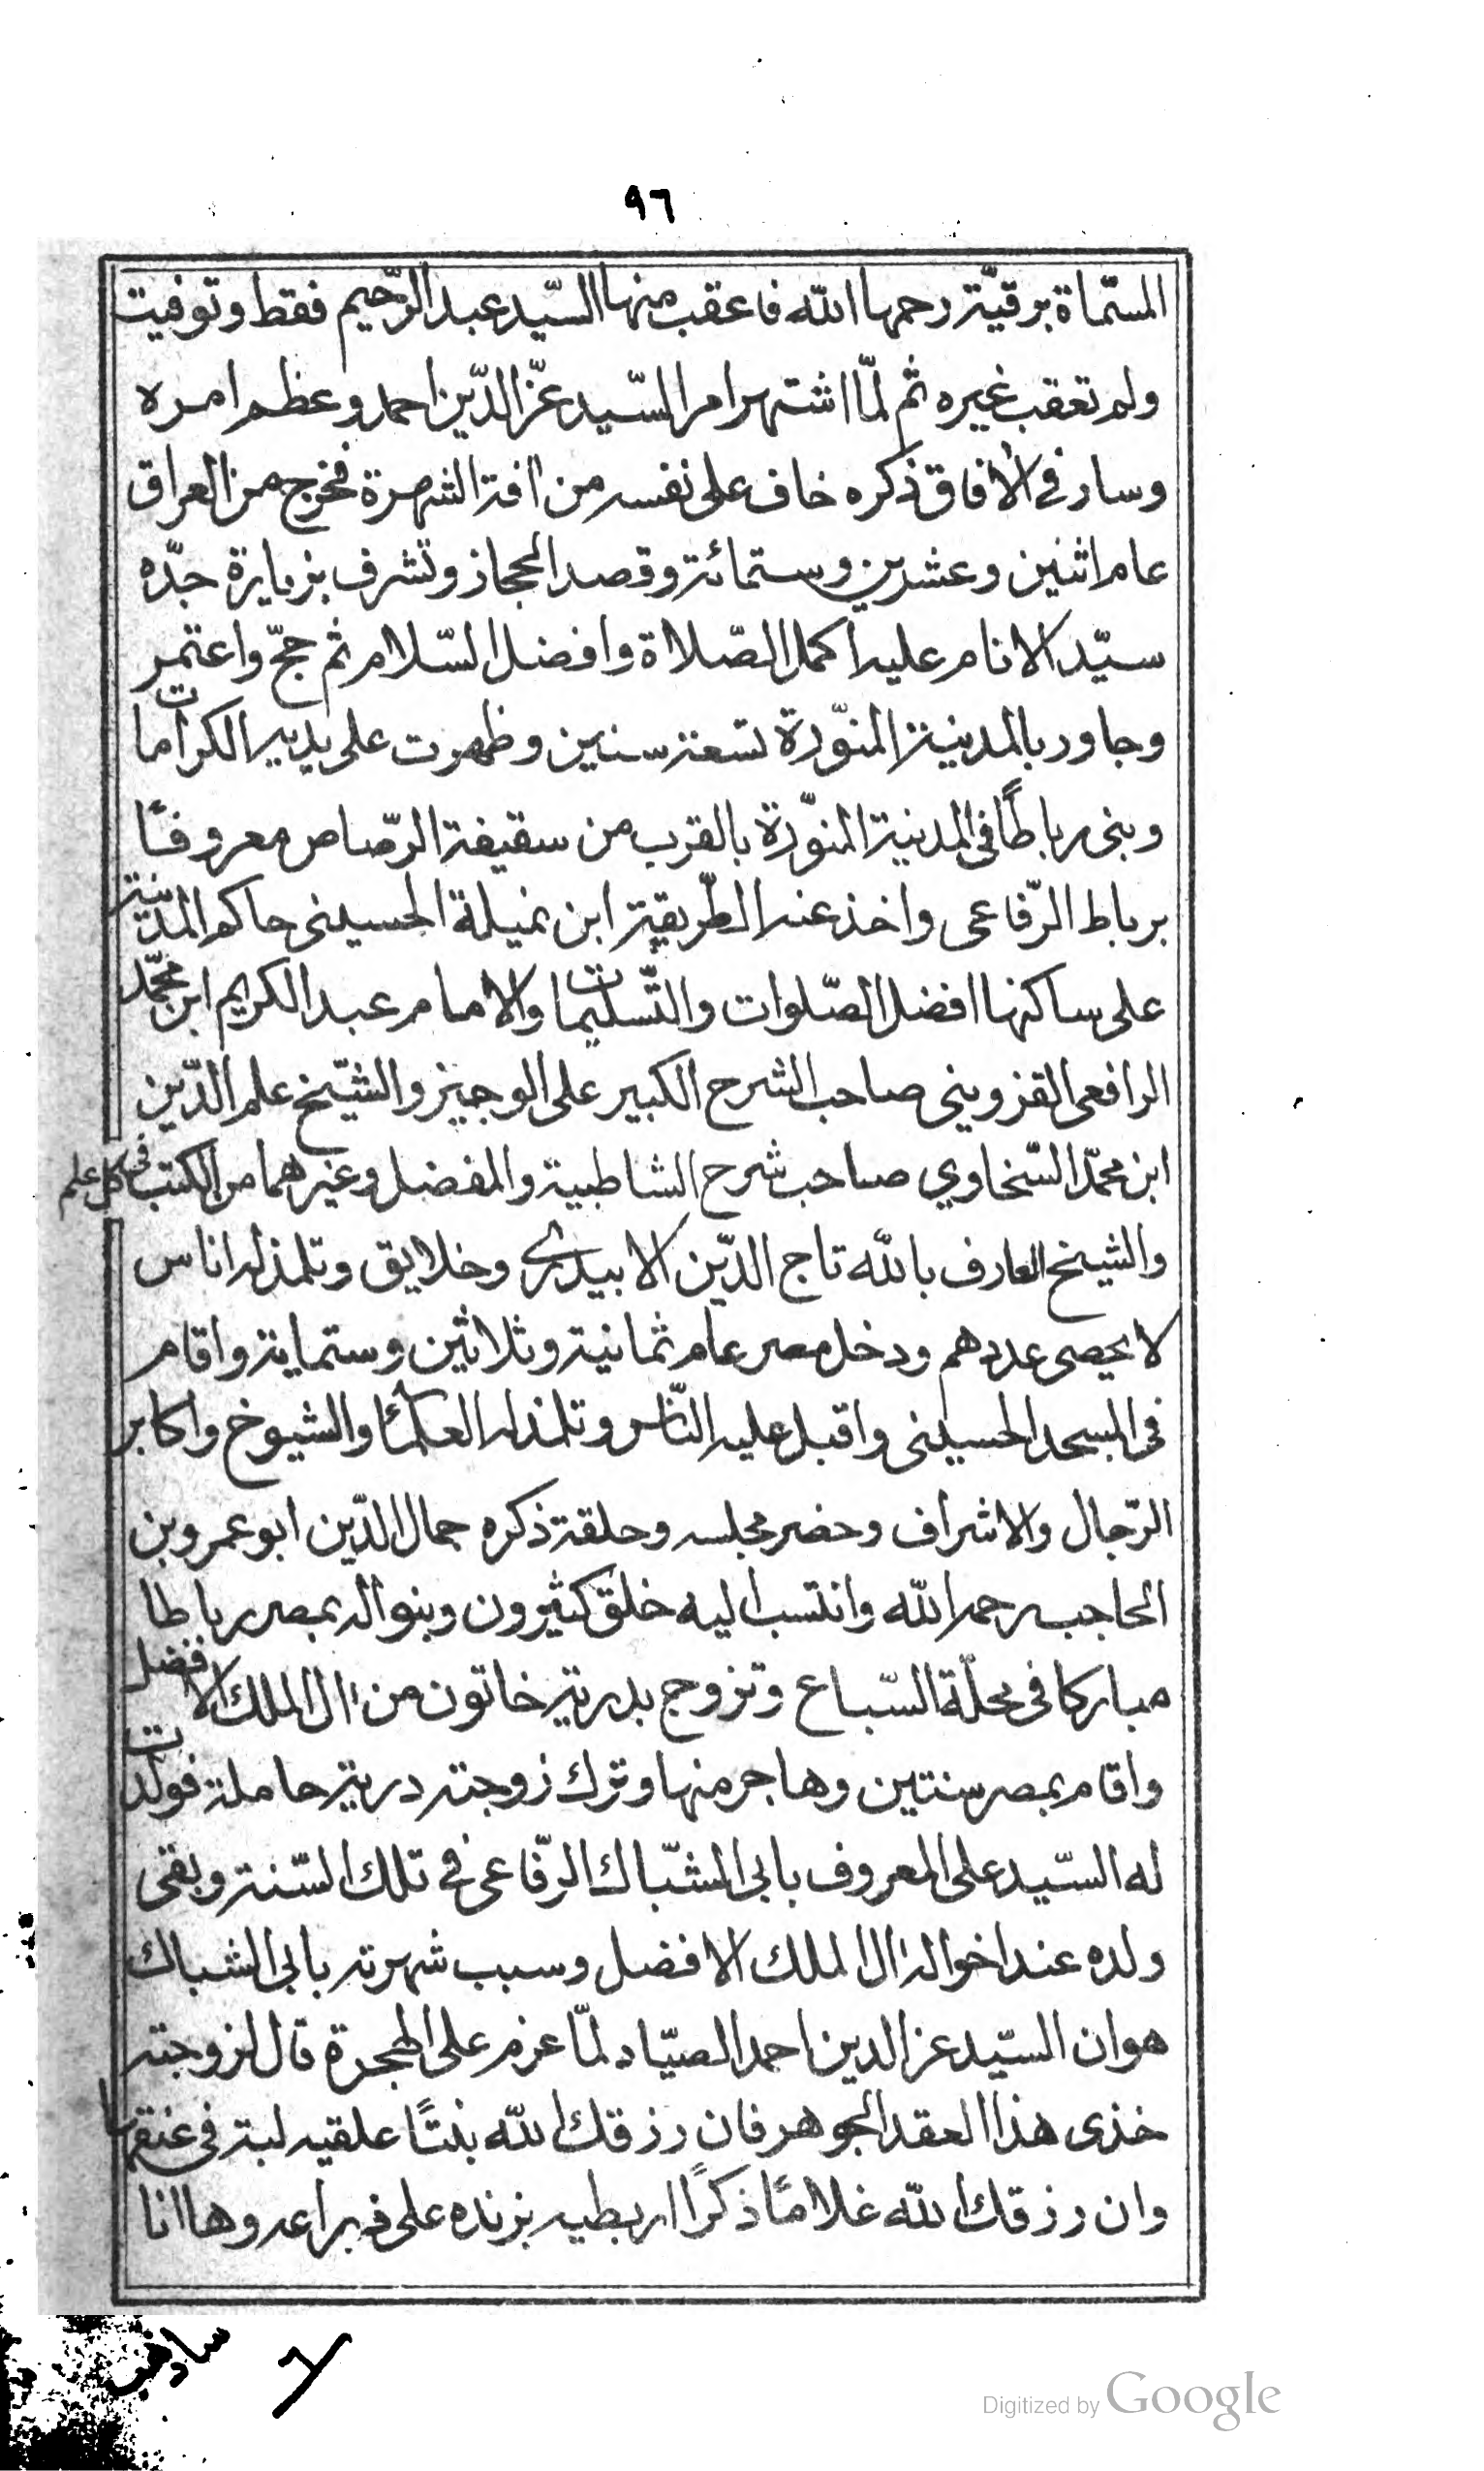 ٩٦
المسمّاة برقيّة رحمها الله فاعقب منها السّيد عبد الرّحيم فقط وتوفيت
ولم تعقب غيره ثم لمّا اشتهر امر السّيد عزّ الدّين احمد وعظم امره
وسار فى الافاق ذكره خاف على نفسه من افة الشهرة فخرج من العراق
عام اثنين وعشرين وستمائة وقصد الحجاز وتشرف بزيارة جدّه
سيّد الانام عليه اكمل الصّلاة وافضل السّلام ثم حجّ واعتمر
وجاور بالمدينة المنوّرة تسعة سنين وظهرت على يديه الكرامات
وبنى رباطًا فى المدينة المنوّرة بالقرب من سقيفة الرّصاص معروفًا
برباط الرّفاعى واخذ عنه الطّريقة ابن نميلة الحسينى حاكم المدينة
على ساكنها افضل الصّلوات والتّسليمات والامام عبد الكريم ابن محمّد
الرافعى القزوينى صاحب الشرح الكبير على الوجيز والشّيخ علم الدّين
ابن محمّد السّخاوي صاحب شرح الشاطبية والمفضل وغيرهما من الكتب فى كل علم
والشيخ العارف بالله تاج الدّين الابيدرى وخلايق وتلمذ له اناس
لا يحصى عددهم ودخل مصر عام ثمانية وثلاثين وستماية واقام
فى المسجد الحسينى واقبل عليه النّاس وتلمذ له العلمأ والشيوخ واكابر
الرّجال والاشراف وحضر مجلسه وحلقة ذكره جمال الدّين ابو عمرو بن
الحاجب رحمه الله وانتسب اليه خلق كثيرون وبنوا له بمصر رباطا
مباركا فى محلّة السّباع وتزوج بدرية خاتون من ال الملك الافضل
واقام بمصر سنتين وهاجر منها وترك زوجته درية حاملة فولدت
له السّيد على المعروف بابى الشبّاك الرّفاعى فى تلك السّنة وبقى
ولده عند اخواله ال الملك الافضل وسبب شهرته بابى الشباك
هو ان السّيد عز الدين احمد الصيّاد لمّا عزم على الهجرة قال لزوجته
خذى هذا العقد الجوهر فان رزقك الله بنتًا علقيه لبة فى عنقها
وان رزقك الله غلامًا ذكرًا اربطيه بزنده على ذراعه وها انا